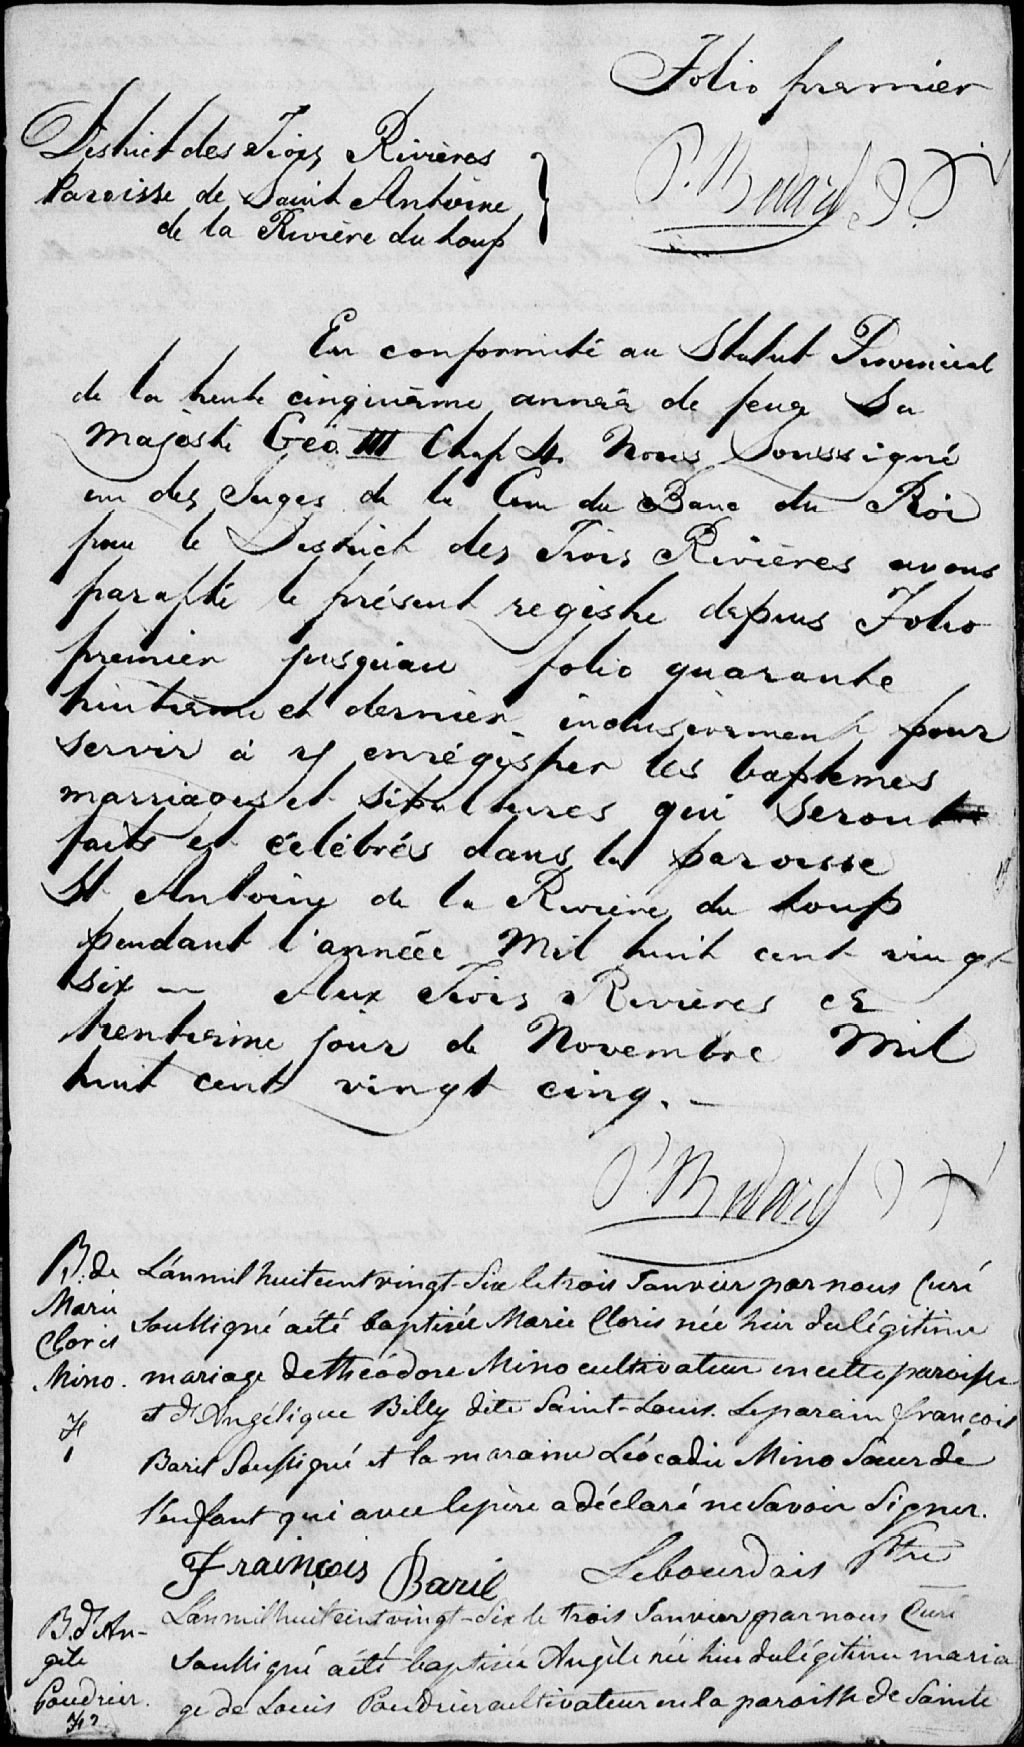 Folio premier
District des Trois Rivières
Paroisse de Saint Antoine
de la Rivière du Loup
P. Bedard
En conformité au Statut Provincial
de la trente cinquième année de feue Sa
Majesté Geo. III Chap 4. Nous Soussigné
un des Juges de la Cour du Banc du Roi
pour le District des Trois Rivières avons
paraphé le présent registre depuis Folio
premier jusqu'au folio quarante
huitième et dernier inclusivement pour
servir à y enrégistrer les baptemes
marriages et sépultures qui seront
faits et célébrés dans la paroisse
St Antoine de la Rivière du Loup
pendant l'année Mil huit cent vingt
six — Aux Trois Rivières ce
trentième jour de Novembre Mil
huit cent vingt cinq. —
P. Bedard
B. de
Marie
Cloris
Mino.
L'an mil huit cent vingt-Six le trois Janvier par nous Curé
Soussigné a été baptisée Marie Cloris née hier du légitime
mariage de théodore Mino cultivateur en cette paroisse
et d'Angélique Billy dite Saint-Louis. Le parain françois
Baril Soussigné et la maraine Léocadie Mino Sœur de
l'enfant qui avec le père a déclaré ne Savoir Signer.
Frainçois Baril Lebourdais Ptre
B. d'An-
gèle
Paudrier.
L'an mil huit cent vingt-Six le trois Janvier par nous Curé
Soussigné a été baptisée Angèle née hier du légitime maria
ge de Louis Paudrier cultivateur en la paroisse de Sainte